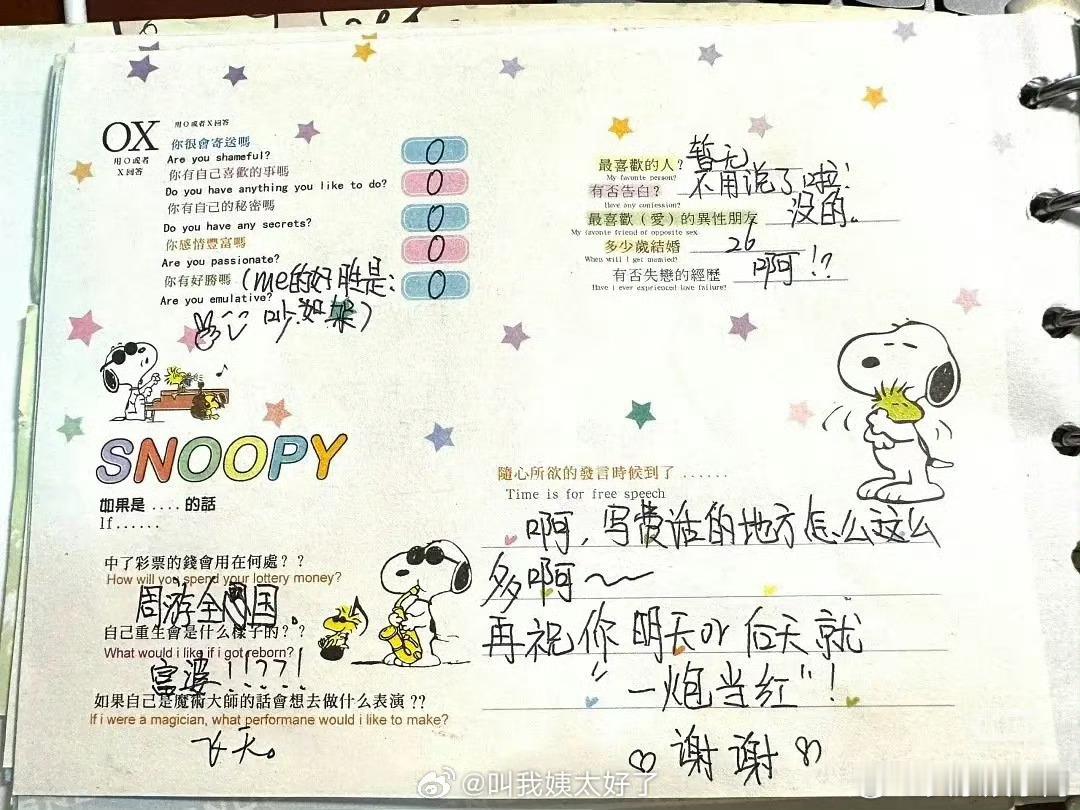 OX
用O或者X回答
用O或者
X回答
你很會寄送嗎
Are you shameful?
O
你有自己喜歡的事嗎
Do you have anything you like to do?
O
你有自己的秘密嗎
Do you have any secrets?
O
你感情豐富嗎
Are you passionate?
O
你有好勝嗎
(me的好胜是:
Are you emulative?
O
SNOOPY
如果是....的話
If......
中了彩票的錢會用在何處？？
How will you spend your lottery money?
周游全国.
自己重生會是什么樣子的？？
What would i like if i got reborn?
富婆!!??!
如果自己是魔術大師的話會想去做什么表演??
If i were a magician, what performane would i like to make?
飞天。
最喜歡的人?
暂无
My favorite person?
有否告白?
不用说了啦
Have any confession?
最喜歡（愛）的異性朋友
没的。
My favorite friend of opposite sex
多少歲結婚
26
When will I get married?
有否失戀的經歷
啊!?
Have i ever exprienced love failure?
隨心所欲的發言時候到了......
Time is for free speech
啊，写废话的地方怎么这么
多啊~~
再祝你明天or后天就
“一炮当红”!
谢谢
@叫我姨太好了